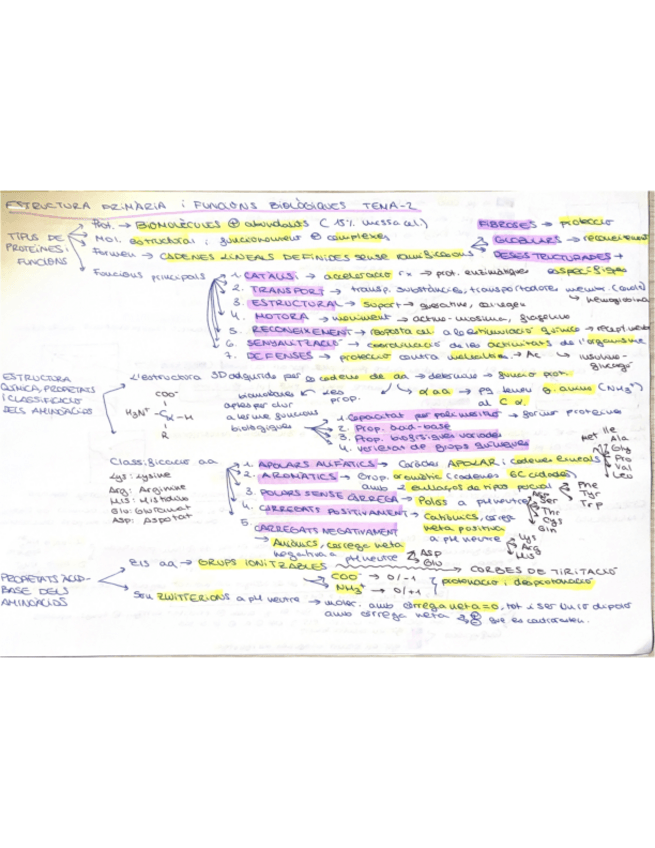 ESTRUCTURA PRIMÀRIA i FUNCIONS BIOLÒGIQUES TEMA-2
TIPUS DE PROTEÏNES i FUNCIONS
Prot. → BIOMOLÈCULES ⊕ abundants (15% massa cel)
Mol. estructural i funcionament ⊕ complexes
Formen → CADENES LINEALS DEFINIDES SENSE ramificacions
FIBROSES → protecció
GLOBULARS → reconeixement
DESESTRUCTURADES →
específiques
Funcions principals
1. CATÀLISI → acceleració rx → prot. enzimàtiques
2. TRANSPORT → transp. substàncies, transportadores
Hemoglobina
3. ESTRUCTURAL → suport →
4. MOTORA → moviment → actina-miosina,
5. RECONEIXEMENT → resposta cel a l'estimulació química →
6. SENYALITZACIÓ → coordinació de les activitats de l'organisme
7. DEFENSES → protecció contra → Ac
ESTRUCTURA QUÍMICA, PROPIETATS i CLASSIFICACIÓ DELS AMINOÀCIDS
L'estructura 3D adquirida per cadena de aa → determina → funció prot.
COO⁻
H₃N⁺ - Cα - H
R
biomolèques aptes per dur a terme funcions biològiques
les prop.
α aa → pq tenen g. amino (NH₃⁺) al C α.
1. Capacitat per polimeritzar → formar proteïnes
2. Prop. àcid-base
3. Prop. biofísiques variades
4. varietat de grups químics
Classificació aa
Lys: Lysine
Arg: Arginine
His: Histidina
Glu: Glutamat
Asp: Aspartat
1. APOLARS ALIFÀTICS → Caràcter APOLAR i cadenes lineals
Met Ile Ala Gly Pro Val Leu
2. AROMÀTICS → Grup aromàtic (cadenes 6C ciclades) amb 2 enllaços de tipus
Phe
Tyr
Trp
3. POLARS SENSE CÀRREGA → Polars a pH neutre
Ser
Thr
Cys
Gln
4. CARREGATS POSITIVAMENT → Catiònics, càrrega neta positiva a pH neutre
Lys
Arg
His
5. CARREGATS NEGATIVAMENT
→ Aniònics, càrrega neta negativa a pH neutre
ASP
Glu
PROPIETATS ÀCID-BASE DELS AMINOÀCIDS
Els aa → GRUPS IONITZABLES
CORBES DE TITITACIÓ
COO⁻ → 0/-1
NH₃⁺ → 0/+1
protonació i desprotonació
Són ZWITTERIONS a pH neutre → molec. amb càrrega neta=0, tot i ser un ió dipolar
amb càrrega neta